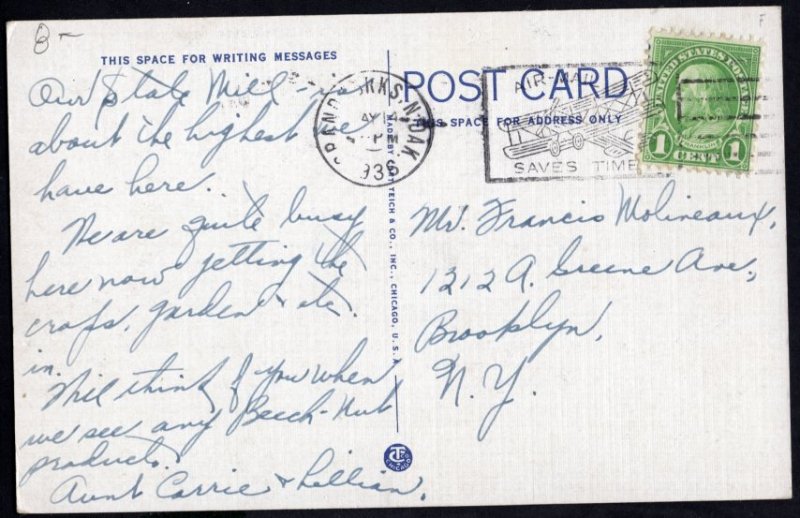 B-
F
THIS SPACE FOR WRITING MESSAGES
Our State Mill - is
about the highest we
have here.
We are quite busy
here now getting the
crops, garden & etc.
in.
Will think of you when
we see any Beech-Nut
products.
Aunt Carrie & Lillian.
GRAND FORKS, N. DAK
PM
1936
MADE BY CURT TEICH & CO., INC., CHICAGO, U.S.A.
POST CARD
THIS SPACE FOR ADDRESS ONLY
AIR-MAIL
SAVES TIME
UNITED STATES POSTAGE
FRANKLIN
1 CENT 1
Mr. Francis Molineaux,
1212 A. Greene Ave.,
Brooklyn,
N. Y.
CHICAGO